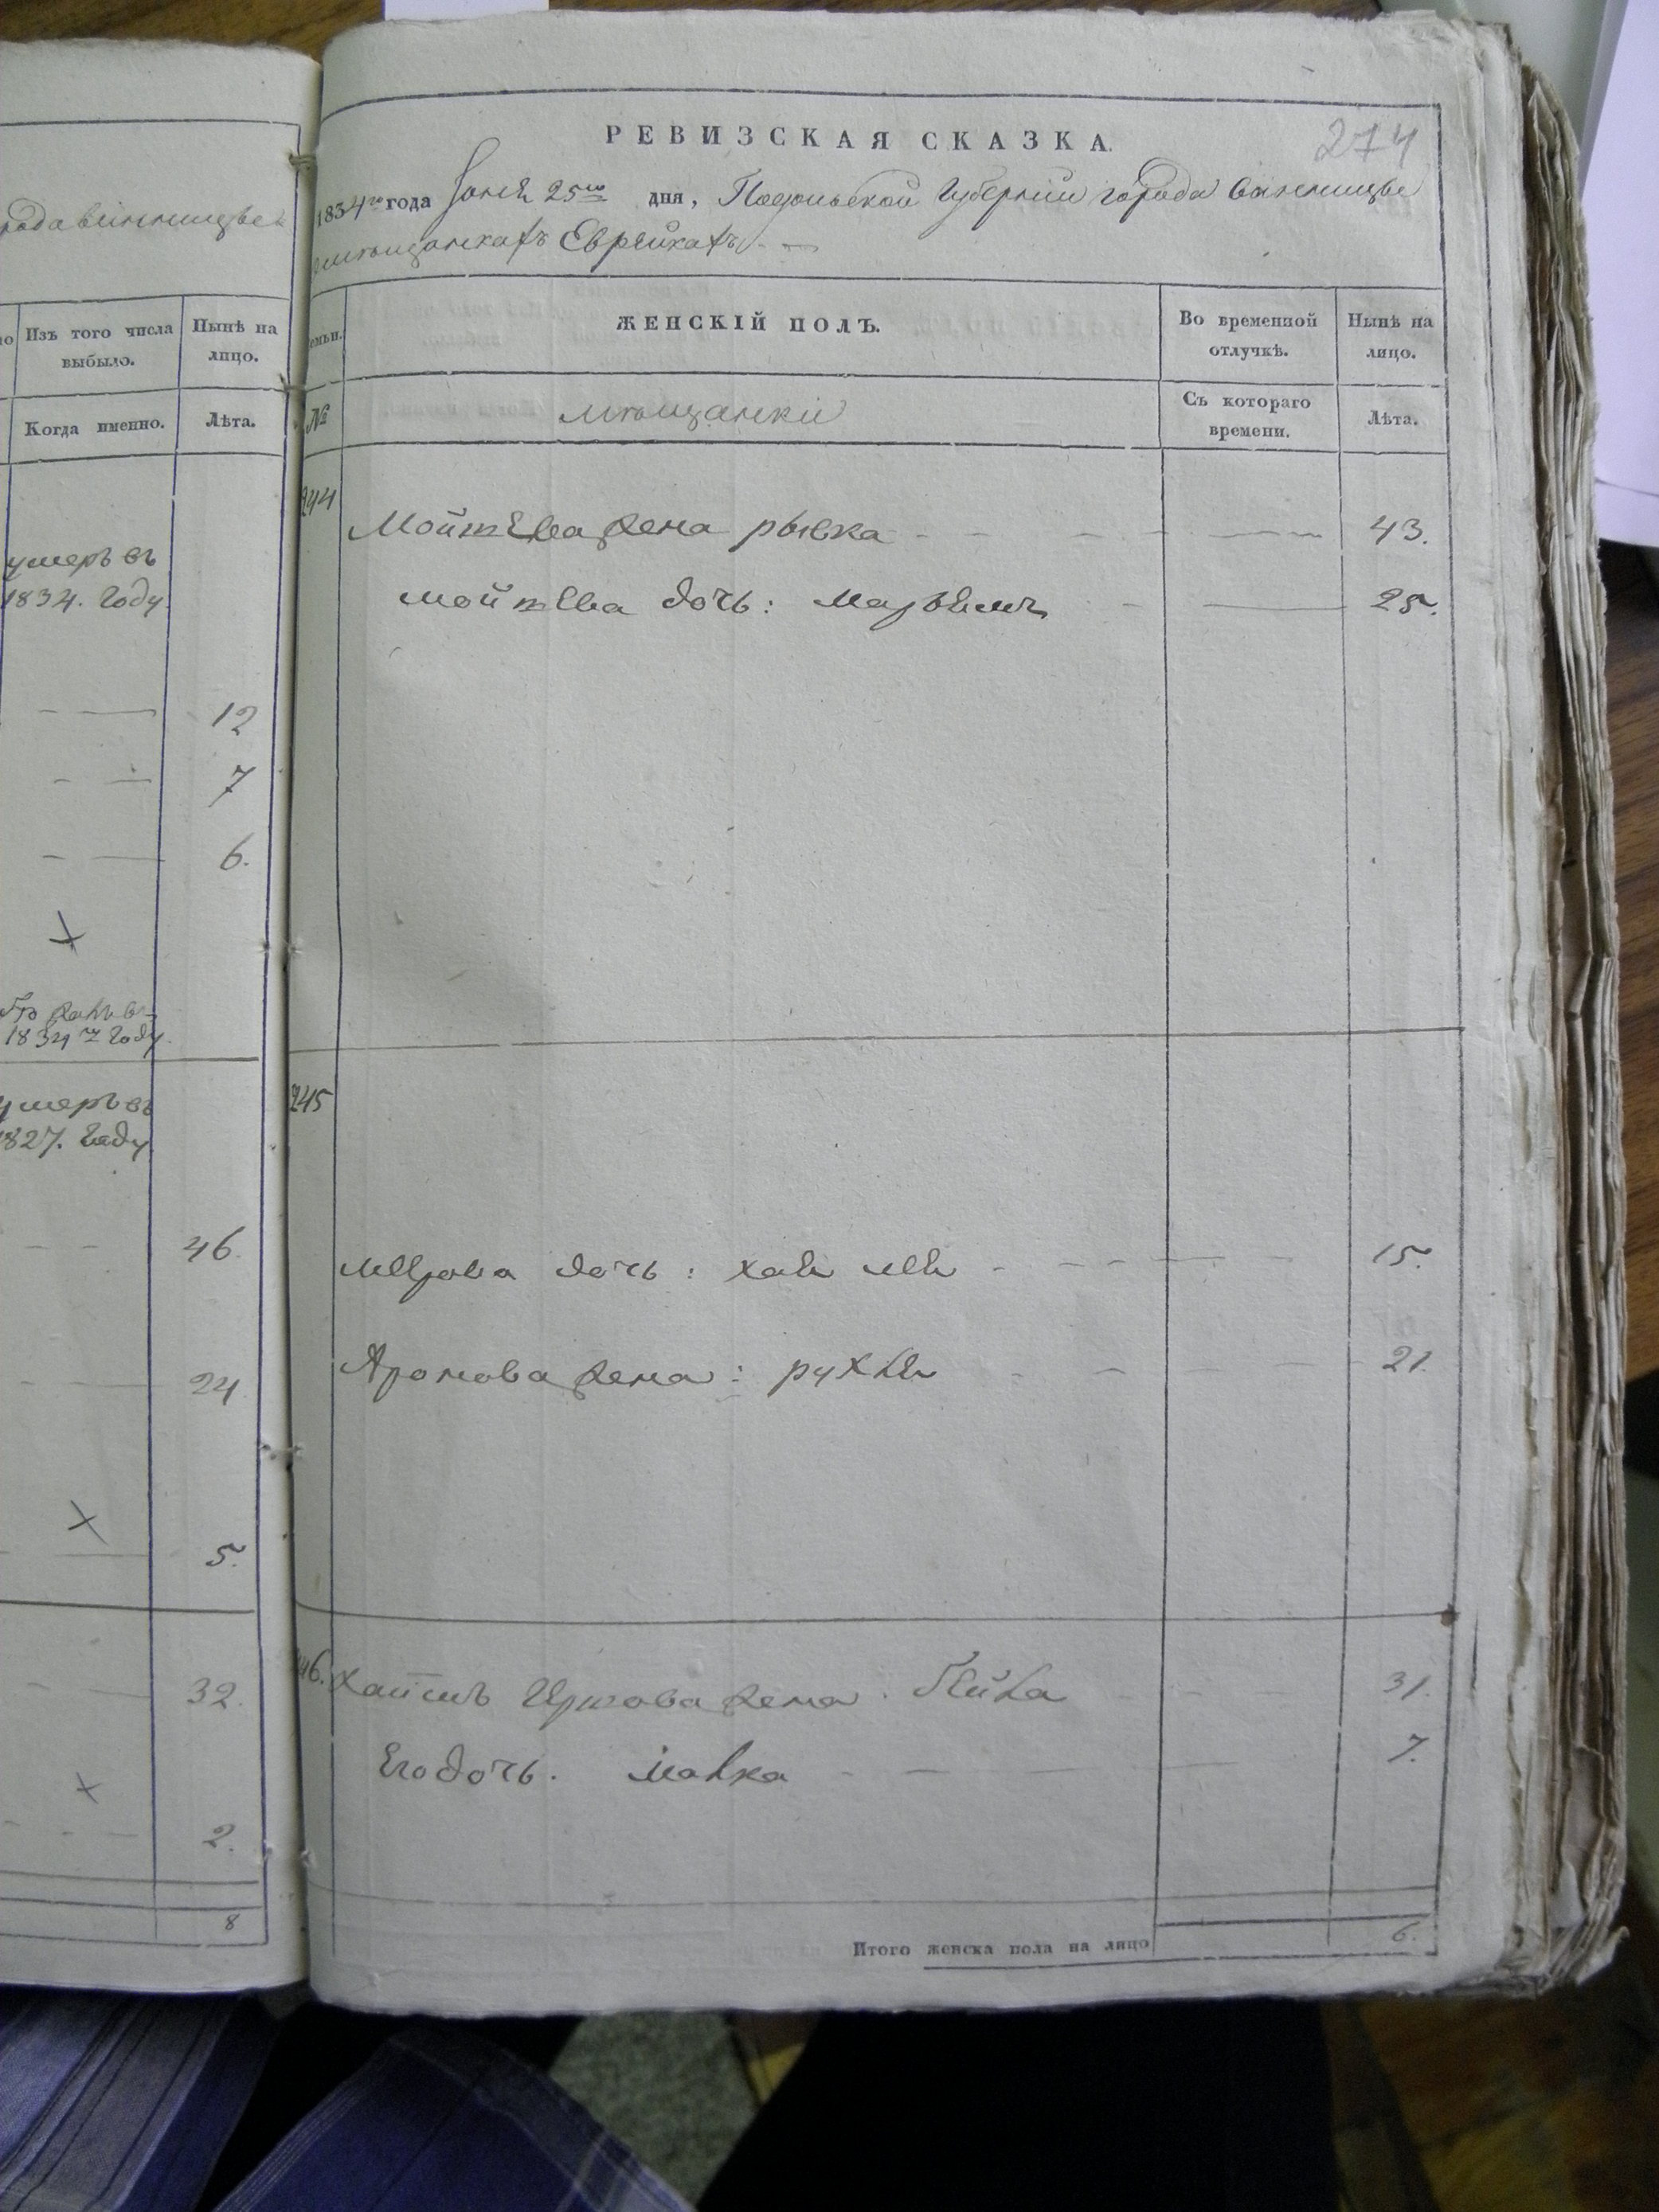 рода винницы
Изъ того числа выбыло.
Нынѣ на лицо.
Когда именно.
Лѣта.
умеръ въ
1834. году.
12
7
6.
1834 году.
умеръ въ
1827. году
46.
24
5.
32.
2.
8
РЕВИЗСКАЯ СКАЗКА.
274
1834го года Іюня 25го дня, Подольской Губерніи города Винницы
о мѣщанкахъ Еврейкахъ
ЖЕНСКІЙ ПОЛЪ.
Во временной отлучкѣ.
Нынѣ на лицо.
№
мѣщанки
Съ котораго времени.
Лѣта.
244
Мойшева жена рывка 43.
мойшева дочь: 25.
245
дочь: хая 15.
Аронова жена: рухля 21.
246. жена 31.
Его дочь. Малка 7.
Итого женска пола на лицо 6.